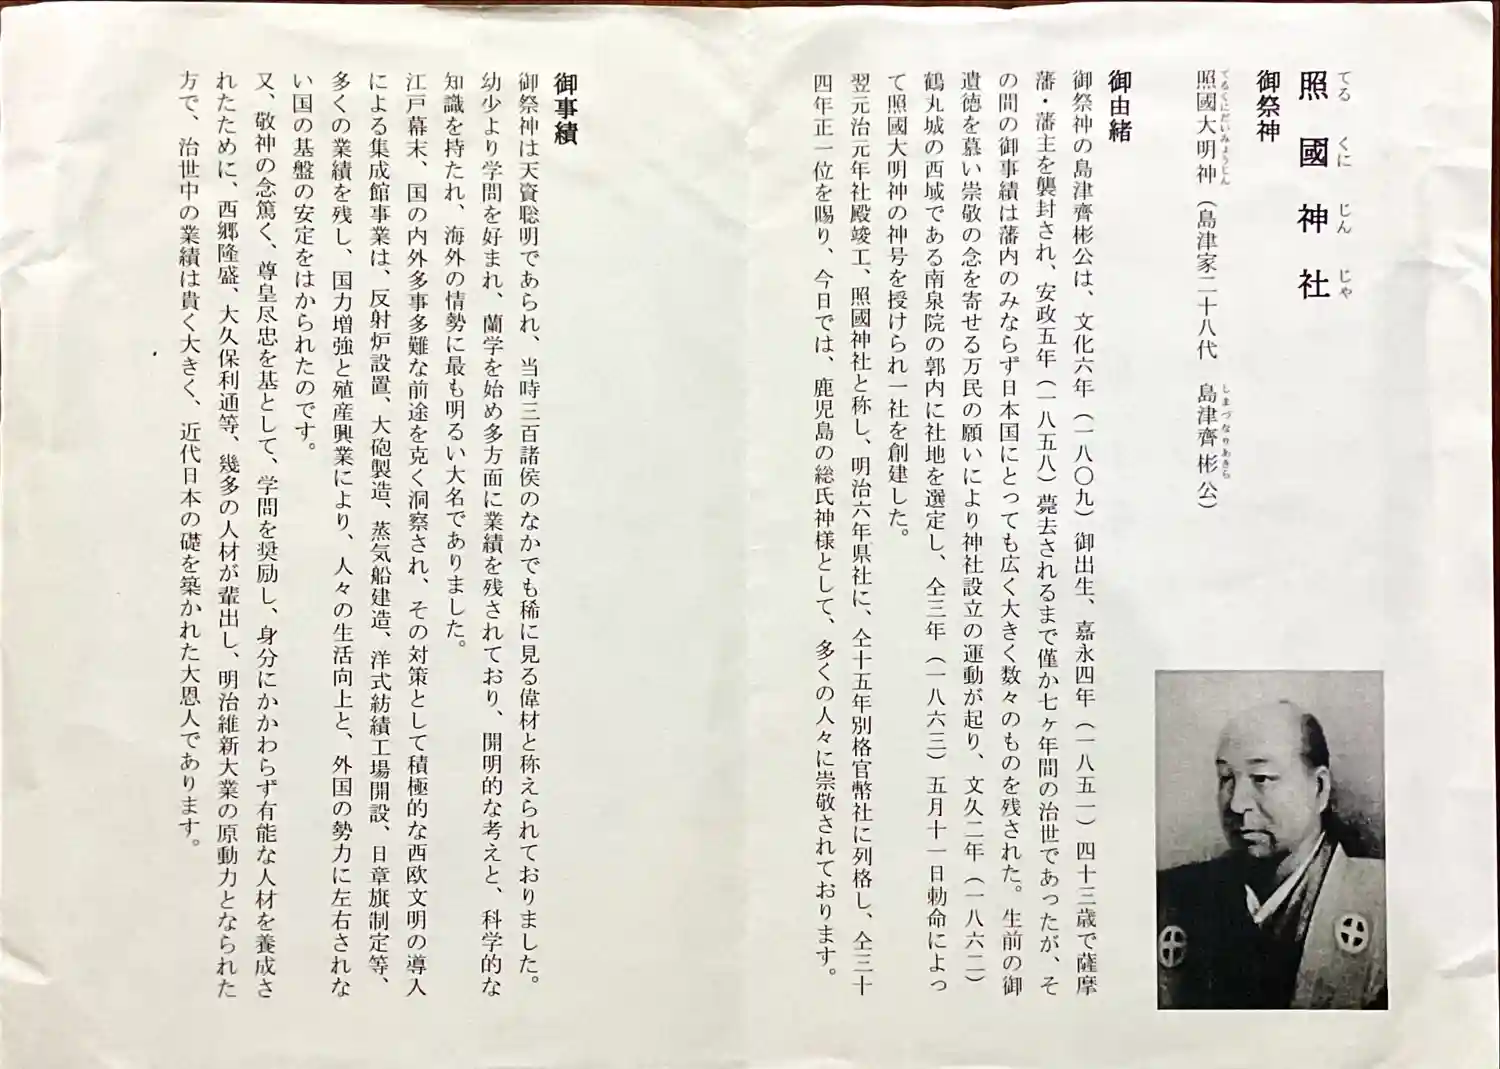 照國神社
てるくにじんじゃ
御祭神
照國大明神（島津家二十八代　島津齊彬公）
てるくにだいみょうじん　しまづなりあきら
御由緒
御祭神の島津齊彬公は、文化六年（一八〇九）御出生、嘉永四年（一八五一）四十三歳で薩摩
藩・藩主を襲封され、安政五年（一八五八）薨去されるまで僅か七ヶ年間の治世であったが、そ
の間の御事績は藩内のみならず日本国にとっても広く大きく数々のものを残された。生前の御
遺徳を慕い崇敬の念を寄せる万民の願いにより神社設立の運動が起り、文久二年（一八六二）
鶴丸城の西域である南泉院の郭内に社地を選定し、仝三年（一八六三）五月十一日勅命によっ
て照國大明神の神号を授けられ一社を創建した。
翌元治元年社殿竣工、照國神社と称し、明治六年県社に、仝十五年別格官幣社に列格し、仝三十
四年正一位を賜り、今日では、鹿児島の総氏神様として、多くの人々に崇敬されております。
御事績
御祭神は天資聡明であられ、当時三百諸侯のなかでも稀に見る偉材と称えられておりました。
幼少より学問を好まれ、蘭学を始め多方面に業績を残されており、開明的な考えと、科学的な
知識を持たれ、海外の情勢に最も明るい大名でありました。
江戸幕末、国の内外多事多難な前途を克く洞察され、その対策として積極的な西欧文明の導入
による集成館事業は、反射炉設置、大砲製造、蒸気船建造、洋式紡績工場開設、日章旗制定等、
多くの業績を残し、国力増強と殖産興業により、人々の生活向上と、外国の勢力に左右されな
い国の基盤の安定をはかられたのです。
又、敬神の念篤く、尊皇尽忠を基として、学問を奨励し、身分にかかわらず有能な人材を養成さ
れたために、西郷隆盛、大久保利通等、幾多の人材が輩出し、明治維新大業の原動力となられた
方で、治世中の業績は貴く大きく、近代日本の礎を築かれた大恩人であります。